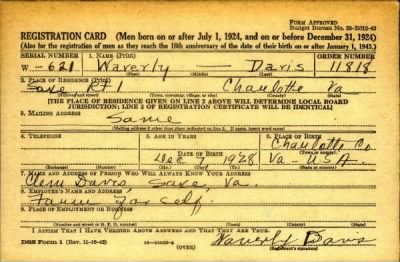 Form Approved
Budget Bureau No. 33-R012-43
REGISTRATION CARD (Men born on or after July 1, 1924, and on or before December 31, 1924)
(Also for the registration of men as they reach the 18th anniversary of the date of their birth on or after January 1, 1943.)
SERIAL NUMBER 1. NAME (Print) ORDER NUMBER
W-621 Waverly — Davis 11818
2. PLACE OF RESIDENCE (Print)
Saxe Rt 1 Charlotte Va
[THE PLACE OF RESIDENCE GIVEN ON LINE 2 ABOVE WILL DETERMINE LOCAL BOARD
JURISDICTION; LINE 2 OF REGISTRATION CERTIFICATE WILL BE IDENTICAL]
3. MAILING ADDRESS
Same
[Mailing address if other than place indicated on line 2. If same, insert word same]
4. TELEPHONE 5. AGE IN YEARS 6. PLACE OF BIRTH
Charlotte Co
DATE OF BIRTH
Dec 7 1928 Va - USA
(Exchange) (Number) (Mo.) (Day) (Yr.) (State or country)
7. NAME AND ADDRESS OF PERSON WHO WILL ALWAYS KNOW YOUR ADDRESS
Clem Davis, Saxe, Va.
8. EMPLOYER'S NAME AND ADDRESS
Farm for self
9. PLACE OF EMPLOYMENT OR BUSINESS
(Number and street or R. F. D. number) (Town) (County) (State)
I AFFIRM THAT I HAVE VERIFIED ABOVE ANSWERS AND THAT THEY ARE TRUE.
DSS Form 1 (Rev. 11-16-42) (OVER) Waverly Davis
(Registrant's signature)